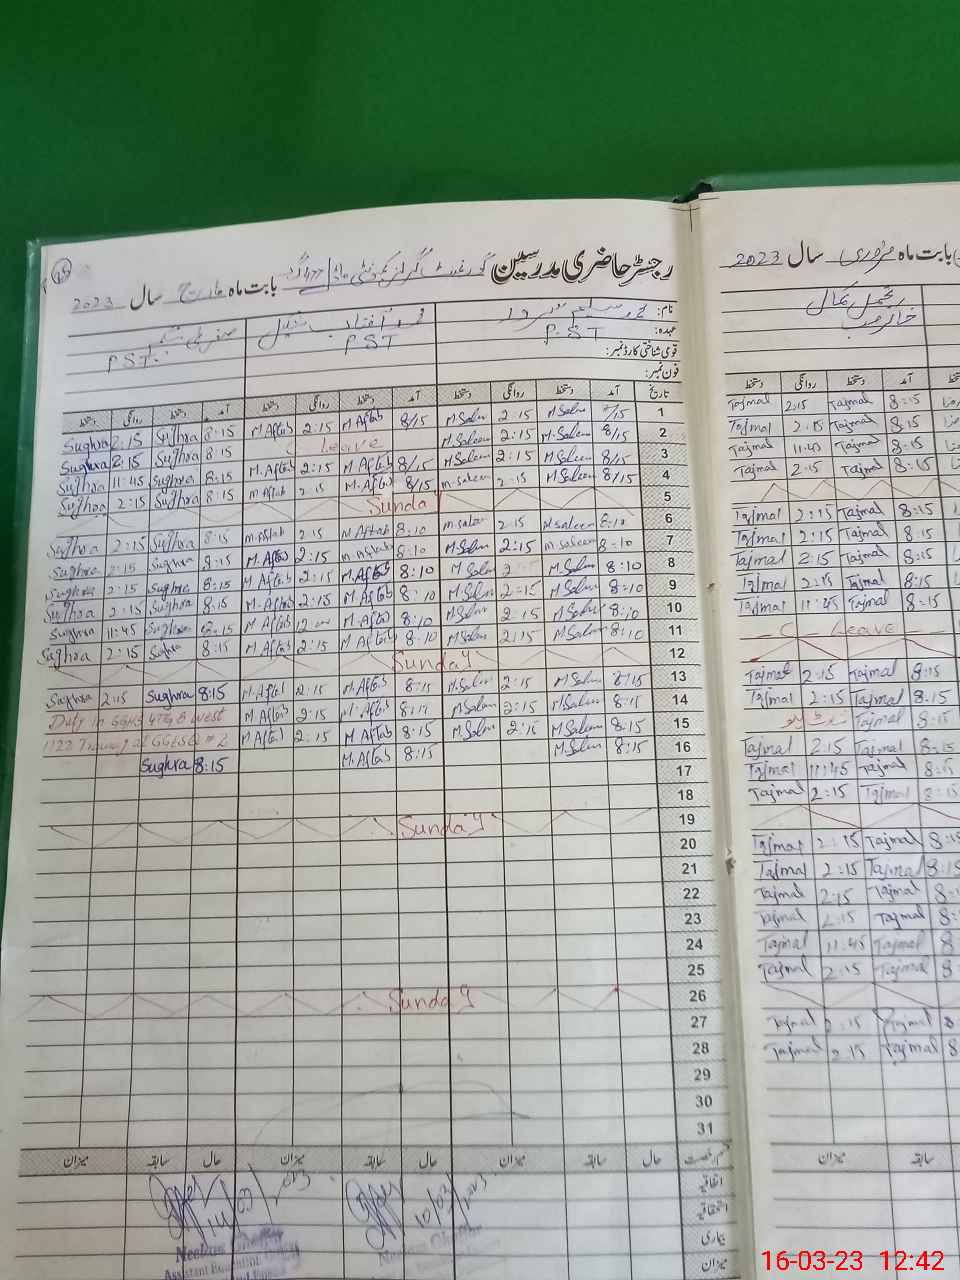 رجسٹر حاضری مدرسین گورنمنٹ گرلز کمیونٹی بابت ماہ مارچ سال 2023
نام: محمد سلیم سرور
عہدہ: PST PST PST
قومی شناختی کارڈ نمبر:
فون نمبر:
تاریخ آمد دستخط روانگی دستخط آمد دستخط روانگی دستخط آمد دستخط روانگی دستخط
1 8/15 M.Saleem 2:15 M.Saleem 8/15 M.Aftab 2:15 M.Aftab 8:15 Sughra 2:15 Sughra
2 8/15 M.Saleem 2:15 M.Saleem Leave 8:15 Sughra 2:15 Sughra
3 8/15 M.Saleem 2:15 M.Saleem 8/15 M.Aftab 2:15 M.Aftab 8:15 Sughra 11:45 Sughra
4 8/15 M.Saleem 2:15 M.Saleem 8/15 M.Aftab 2:15 M.Aftab 8:15 Sughra 2:15 Sughra
5 Sunday
6 8:10 M.Saleem 2:15 M.Saleem 8:10 M.Aftab 2:15 M.Aftab 8:15 Sughra 2:15 Sughra
7 8:10 M.Saleem 2:15 M.Saleem 8:10 M.Aftab 2:15 M.Aftab 8:15 Sughra 2:15 Sughra
8 8:10 M.Saleem 2:15 M.Saleem 8:10 M.Aftab 2:15 M.Aftab 8:15 Sughra 2:15 Sughra
9 8:10 M.Saleem 2:15 M.Saleem 8:10 M.Aftab 2:15 M.Aftab 8:15 Sughra 2:15 Sughra
10 8:10 M.Saleem 2:15 M.Saleem 8:10 M.Aftab M.Aftab 8:15 Sughra 11:45 Sughra
11 8:10 M.Saleem 2:15 M.Saleem 8:10 M.Aftab 2:15 M.Aftab 8:15 Sughra 2:15 Sughra
12 Sunday
13 8:15 M.Saleem 2:15 M.Saleem 8:15 M.Aftab 2:15 M.Aftab 8:15 Sughra 2:15 Sughra
14 8:15 M.Saleem 2:15 M.Saleem 8:15 M.Aftab 2:15 M.Aftab Duty in West
15 8:15 M.Saleem 2:15 M.Saleem 8:15 M.Aftab 2:15 M.Aftab 1122 Training at # 2
16 8:15 M.Saleem 8:15 M.Aftab 8:15 Sughra
17
18
19 Sunday
20
21
22
23
24
25
26 Sunday
27
28
29
30
31
قسم رخصت حال سابقہ میزان حال سابقہ میزان حال سابقہ میزان
اتفاقیہ
استحقاقیہ
بیماری
میزان
10/03/2023
14/03/2023
Assistant Education
بابت ماہ فروری سال 2023
تجمل کمال
آمد دستخط روانگی دستخط
8:15 Tajmal 2:15 Tajmal
8:15 Tajmal 2:15 Tajmal
8:15 Tajmal 11:45 Tajmal
8:15 Tajmal 2:15 Tajmal
8:15 Tajmal 2:15 Tajmal
8:15 Tajmal 2:15 Tajmal
8:15 Tajmal 2:15 Tajmal
8:15 Tajmal 2:15 Tajmal
8:15 Tajmal 11:45 Tajmal
C Leave
8:15 Tajmal 2:15 Tajmal
8:15 Tajmal 2:15 Tajmal
8:15 Tajmal
8:15 Tajmal 2:15 Tajmal
8:15 Tajmal 11:45 Tajmal
8:15 Tajmal 2:15 Tajmal
8:15 Tajmal 2:15 Tajmal
8:15 Tajmal 2:15 Tajmal
Tajmal 2:15 Tajmal
Tajmal 2:15 Tajmal
Tajmal 11:45 Tajmal
Tajmal 2:15 Tajmal
Tajmal 2:15 Tajmal
Tajmal 2:15 Tajmal
میزان سابقہ
16-03-23 12:42